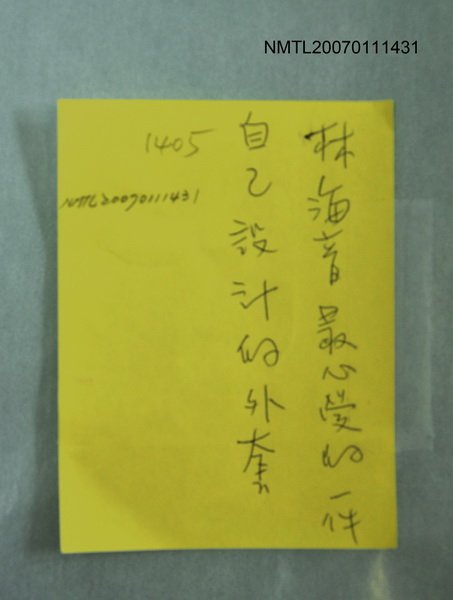 NMTL20070111431
林海音最心愛的一件
自己設計的外套
1405
NMTL20070111431